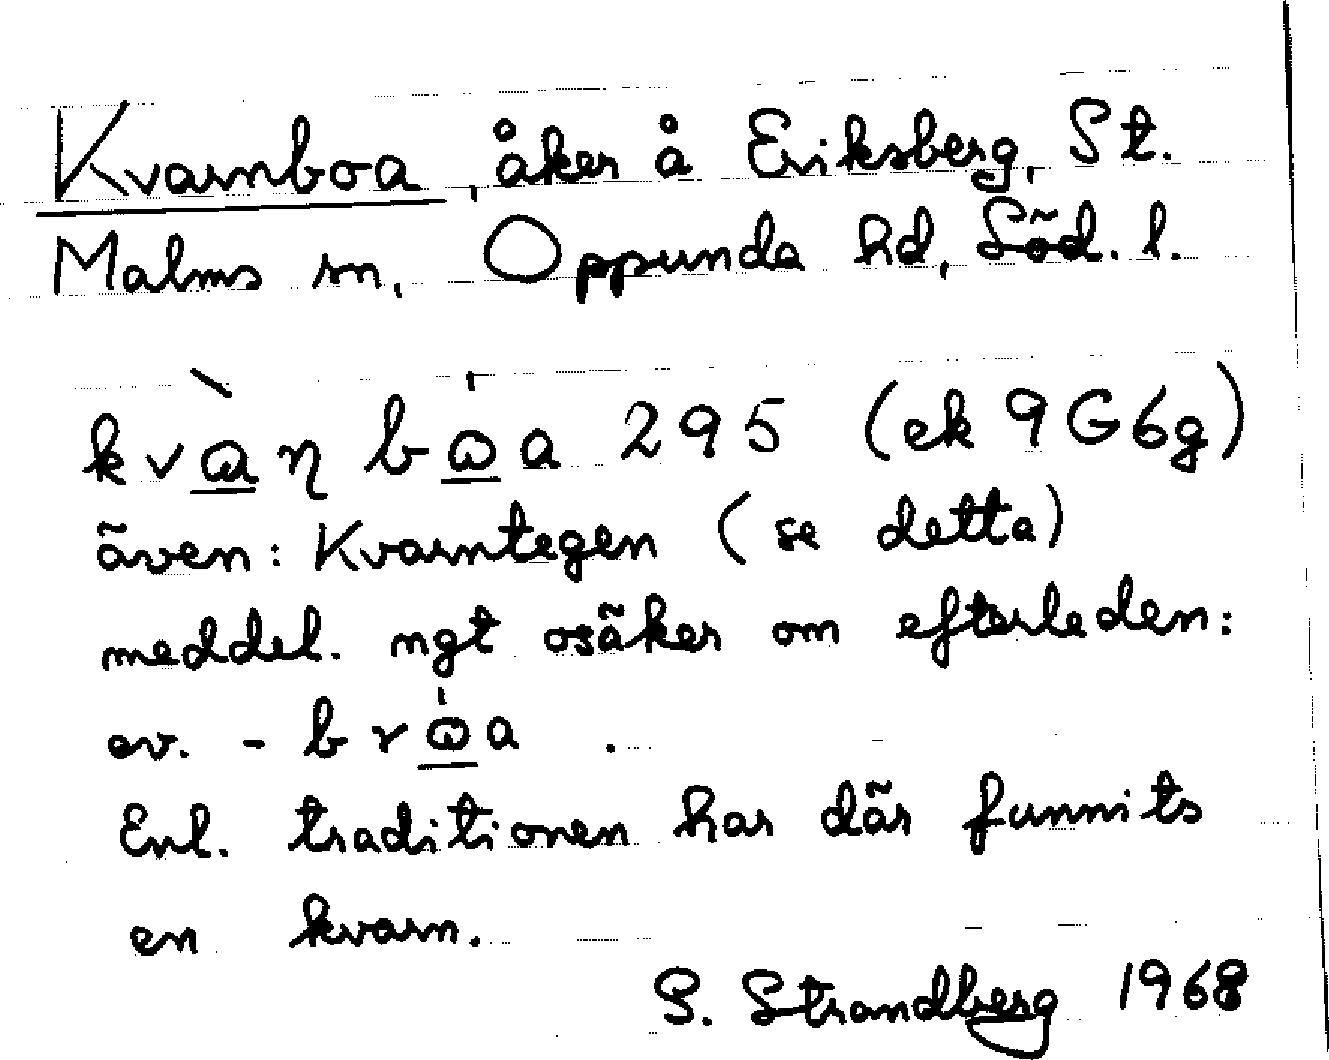 Kvarnboa, åker å Eriksberg, St.
Malms sn, Oppunda hd, Söd. l.
295 (ek 9G6g)
även: Kvarntegen (se detta)
meddel. ngt osäker om efterleden:
ev.
Enl. traditionen har där funnits
en kvarn.
S. Strandberg 1968